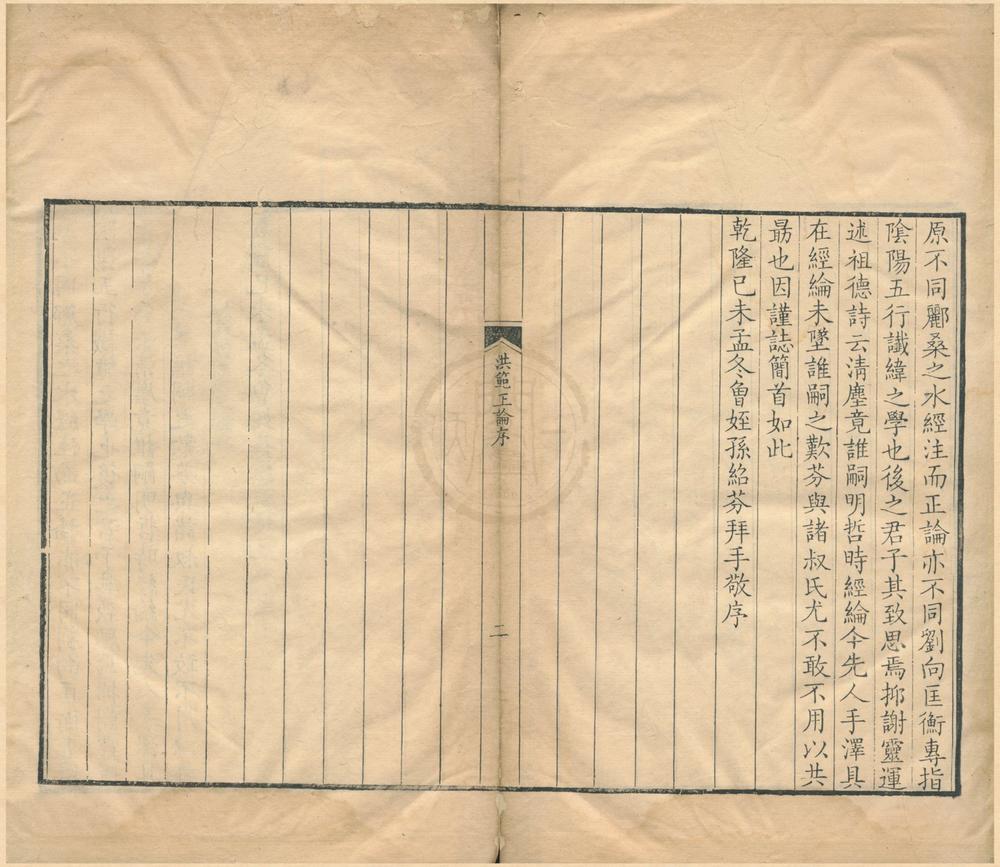 原不同酈桑之水經注而正論亦不同劉向匡衡專指
陰陽五行讖緯之學也後之君子其致思焉抑謝靈運
述祖德詩云清塵竟誰嗣明哲時經綸今先人手澤具
在經綸未墜誰嗣之歎芬與諸叔氏尤不敢不用以共
勗也因謹誌簡首如此
乾隆己未孟冬曾姪孫紹芬拜手敬序
洪範正論序
二